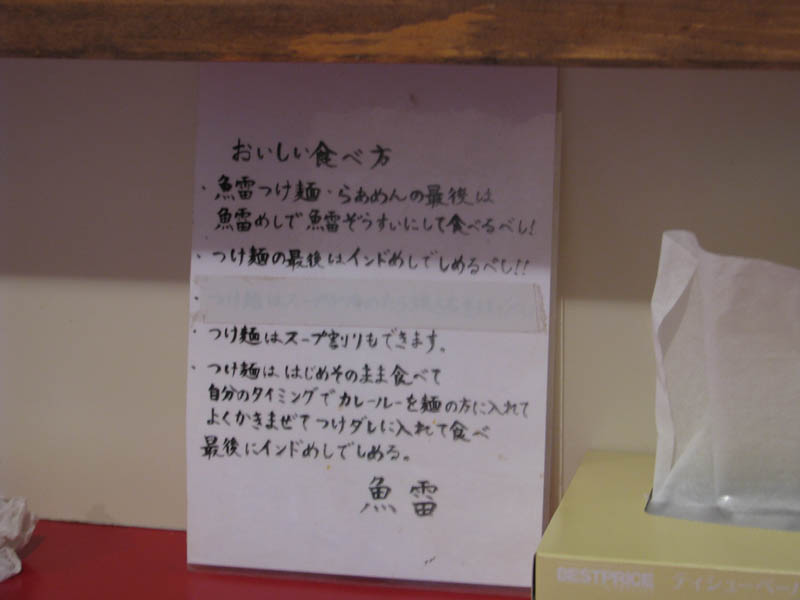 おいしい食べ方
・魚雷つけ麺・らあめんの最後は
魚雷めしで魚雷ぞうすいにして食べるべし!
・つけ麺の最後はインドめしでしめるべし!!
・つけ麺はスープ割りもできます。
・つけ麺は はじめそのまま食べて
自分のタイミングでカレールーを麺の方に入れて
よくかきまぜてつけダレに入れて食べ
最後にインドめしでしめる。
魚雷
BESTPRICE ティシューペーパ